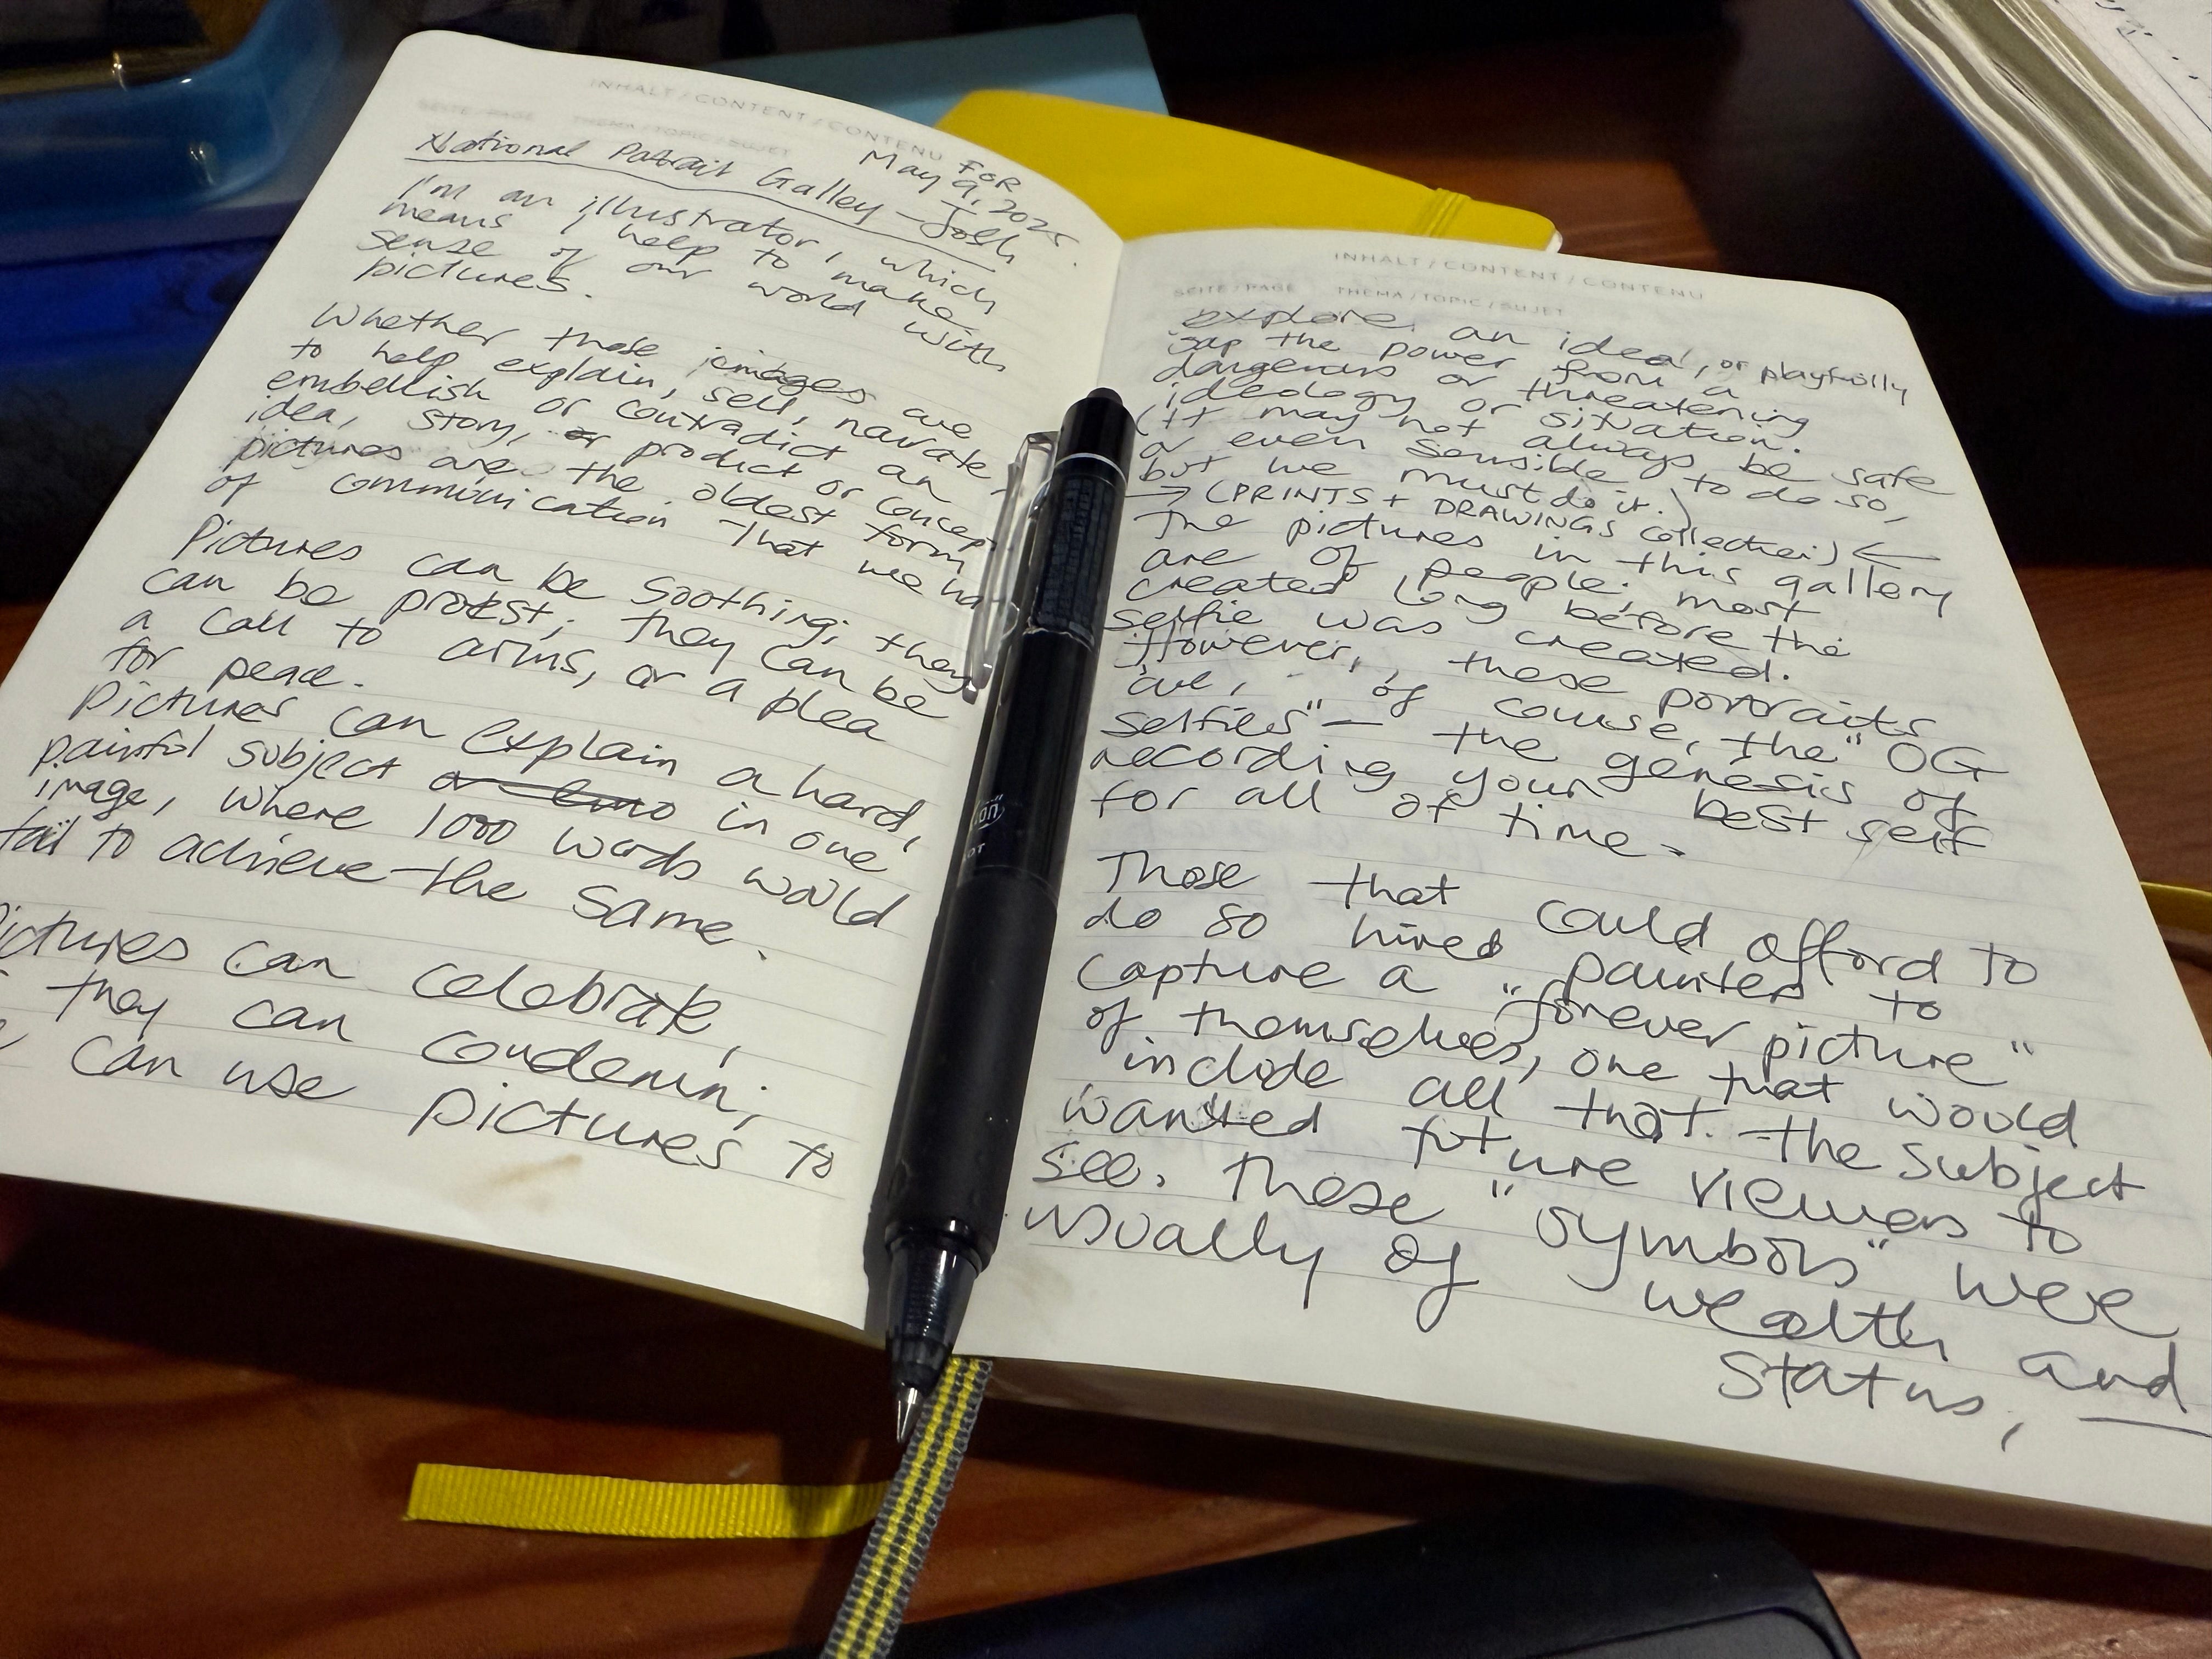 INHALT / CONTENT / CONTENU
SEITE / PAGE THEMA / TOPIC / SUJET
FOR
May 9, 2025.
National Potrait Galley - Josh
I'm an illustrator, which
means I help to make
sense of our world with
pictures.
Whether those images are
to help explain, sell, narrate,
embellish or contradict an
idea, story, or product or concep
pictures are the oldest form
of communication that we ha
Pictures can be soothing; they
can be protest; they can be
a call to arms, or a plea
for peace.
Pictures can explain a hard,
painful subject or in one
image, where 1000 words would
fail to achieve the same.
ictures can celebrate,
they can condemn;
e can use pictures to
INHALT / CONTENT / CONTENU
SEITE / PAGE THEMA / TOPIC / SUJET
explore an idea, or playfully
sap the power from a
dangerous or threatening
ideology or situation.
(It may not always be safe
or even sensible to do so,
but we must do it.)
→ (PRINTS + DRAWINGS collection) ←
The pictures in this gallery
are of people; most
created long before the
selfie was created.
However, these portraits
are, of course, the "OG
selfies" — the genesis of
recording your best self
for all of time.
Those that could afford to
do so hired painters to
capture a "forever picture"
of themselves, one that would
include all that the subject
wanted future viewers to
see. These "symbols" wee
usually of wealth and
status, —